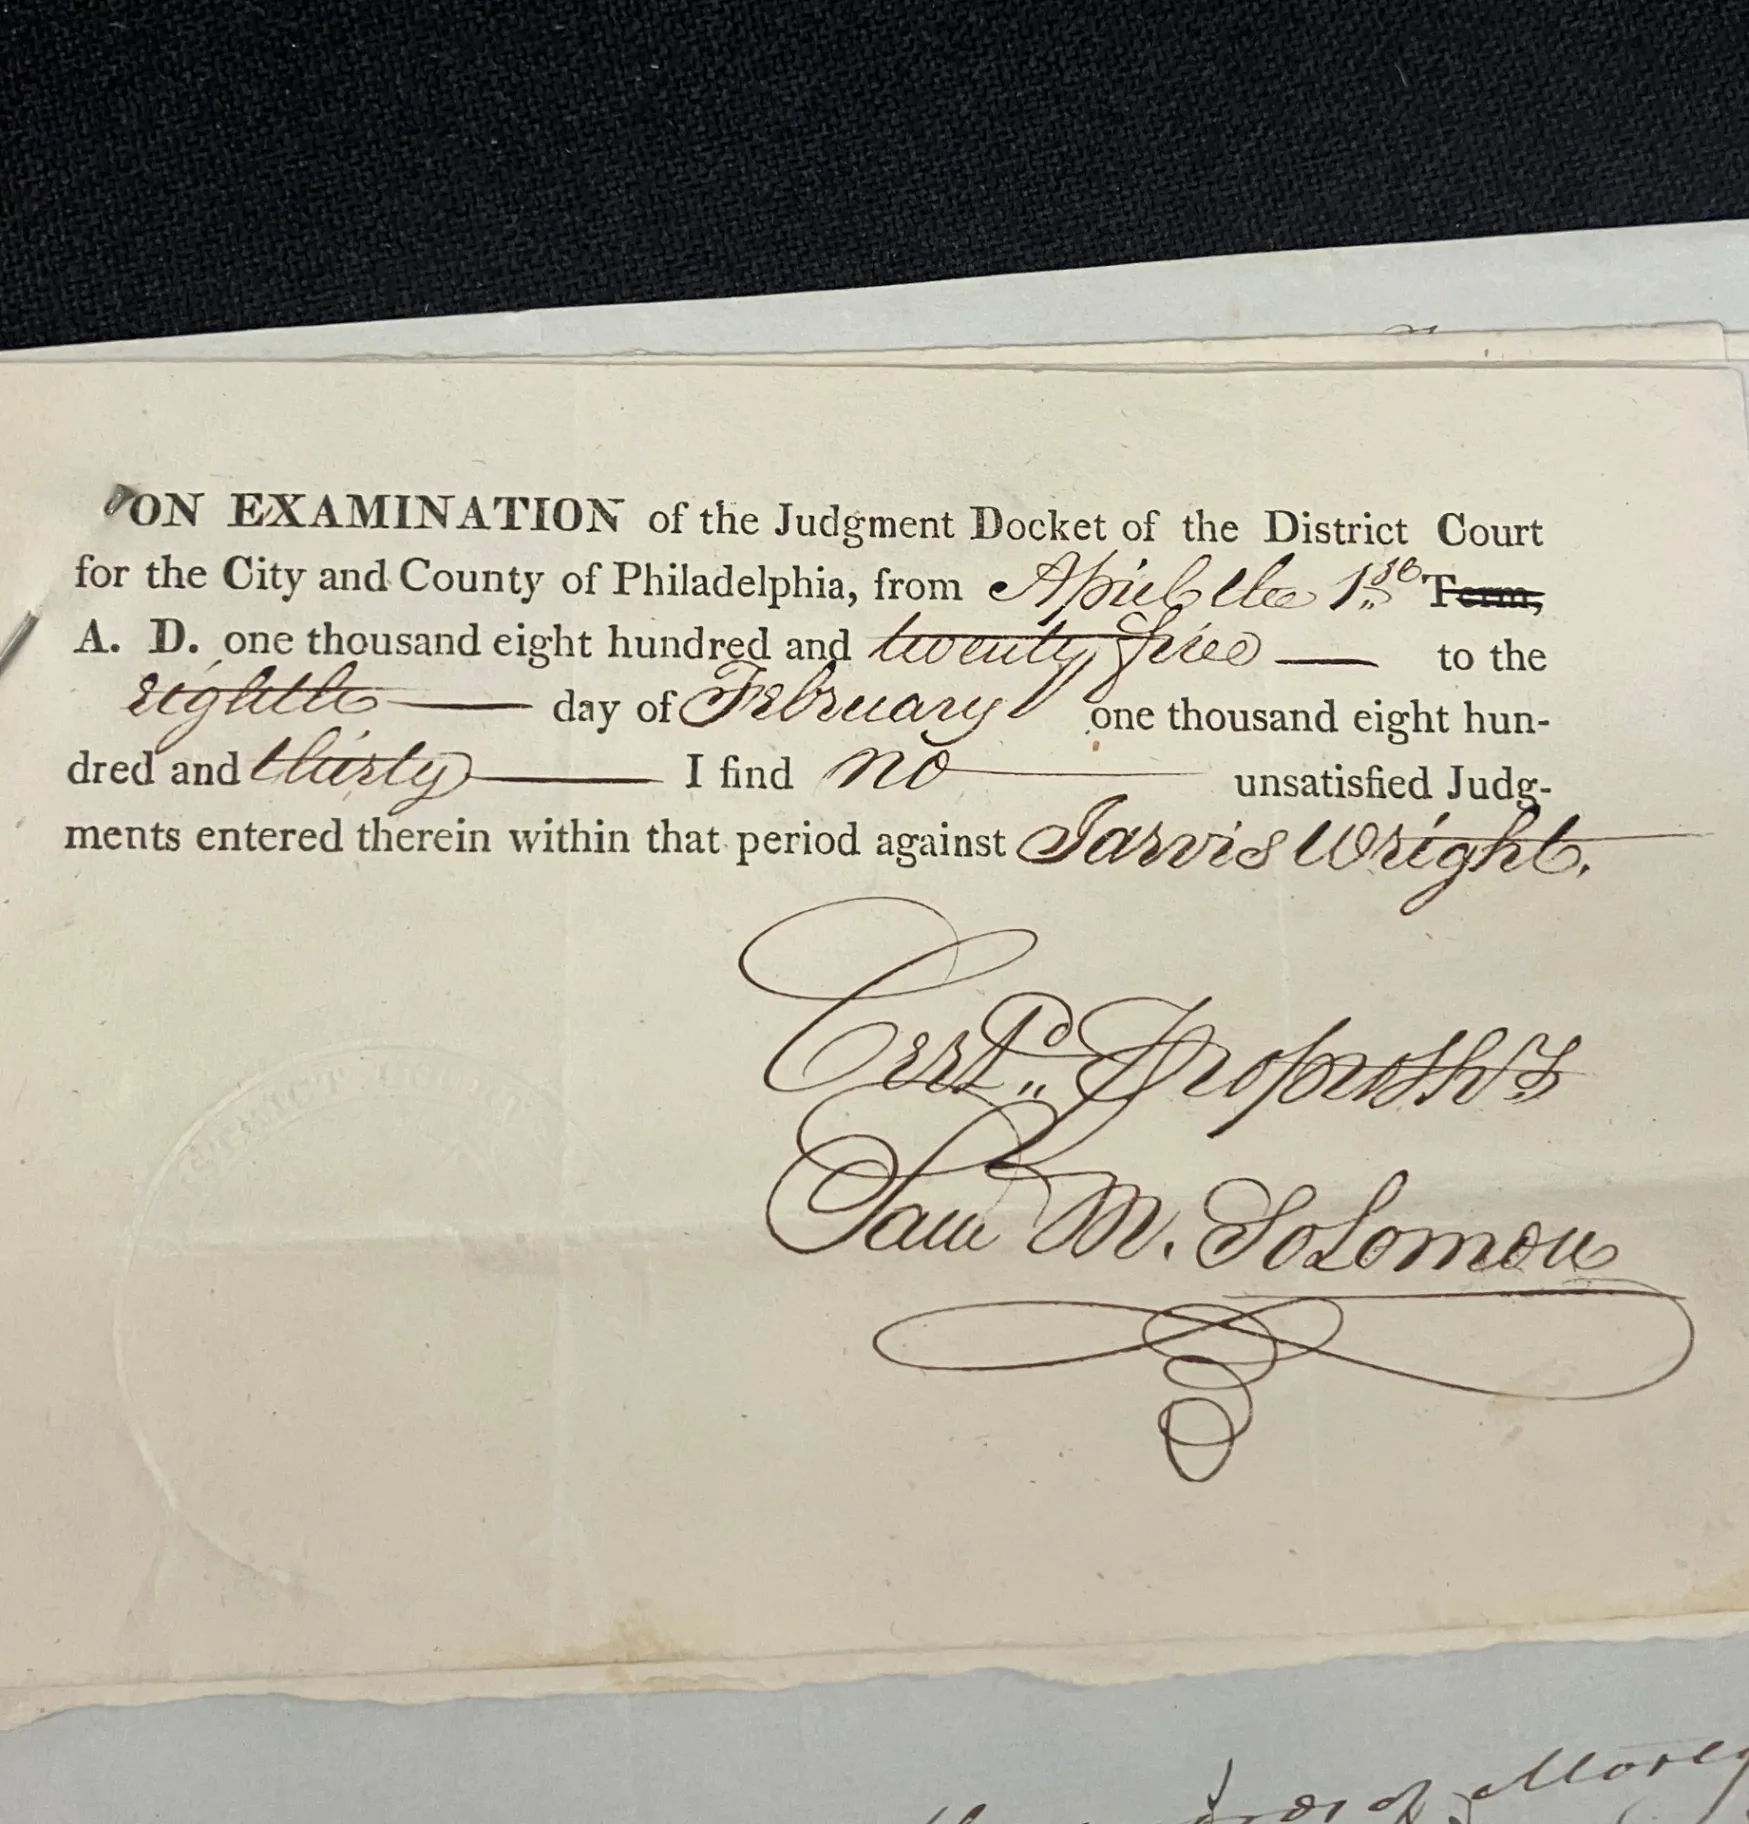 ON EXAMINATION of the Judgment Docket of the District Court
for the City and County of Philadelphia, from April the 1st Term,
A. D. one thousand eight hundred and twenty five to the
eighth day of February one thousand eight hun-
dred and thirty I find no unsatisfied Judg-
ments entered therein within that period against Jarvis Wright.
Certd.
Saml M. Solomon
DISTRICT COURT
of